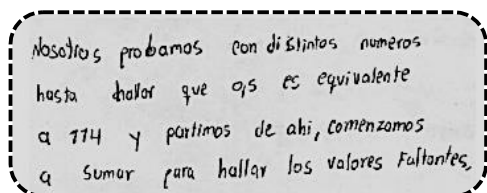 Nosotros probamos con distintos numeros
hasta hallar que 0,5 es equivalente
a 114 y partimos de ahi, comenzamos
a sumar para hallar los valores Faltantes,